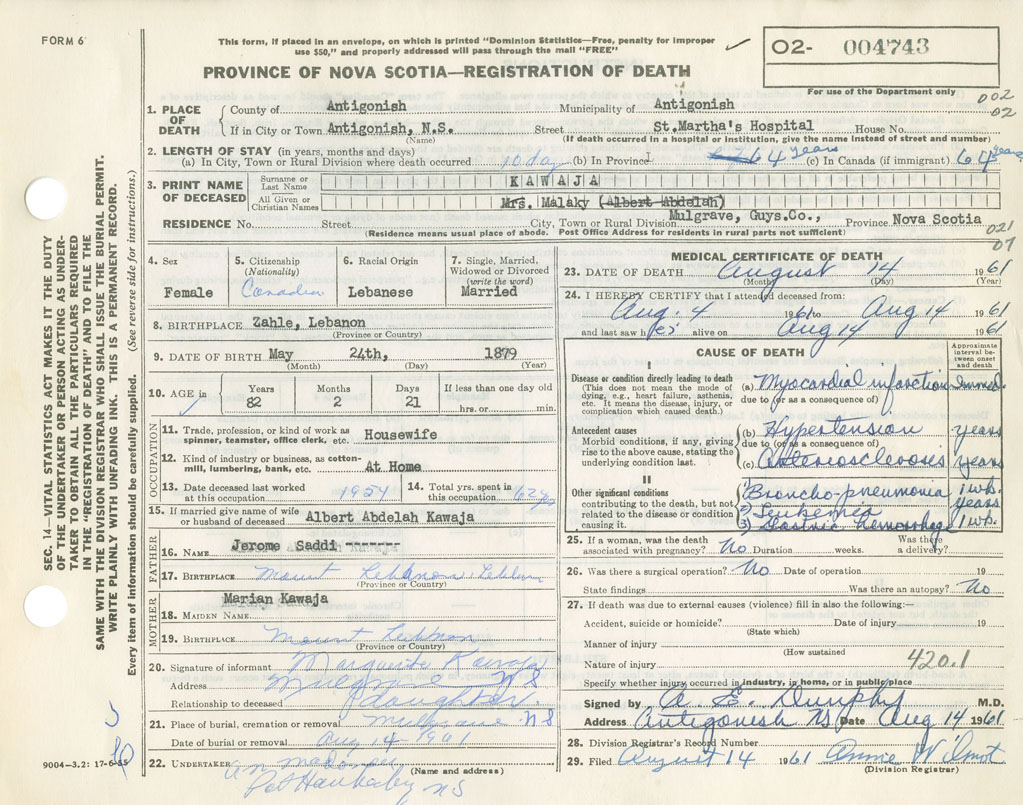 FORM 6
This form, if placed in an envelope, on which is printed "Dominion Statistics—Free, penalty for improper
use $50," and properly addressed will pass through the mail "FREE"
O2- 004743
PROVINCE OF NOVA SCOTIA—REGISTRATION OF DEATH
For use of the Department only
002
02
1. PLACE OF DEATH County of Antigonish Municipality of Antigonish
If in City or Town Antigonish, N.S. Street St.Martha's Hospital House No.
(Name) (If death occurred in a hospital or institution, give the name instead of street and number)
2. LENGTH OF STAY (in years, months and days)
(a) In City, Town or Rural Division where death occurred 10 day (b) In Province 64 years (c) In Canada (if immigrant) 64 years
3. PRINT NAME OF DECEASED Surname or Last Name KAWAJA
All Given or Christian Names Mrs. Malaky (Albert Abdelah)
RESIDENCE No. Street City, Town or Rural Division Mulgrave, Guys.Co., Province Nova Scotia
(Residence means usual place of abode. Post Office Address for residents in rural parts not sufficient)
021
07
4. Sex Female
5. Citizenship (Nationality) Canadian
6. Racial Origin Lebanese
7. Single, Married, Widowed or Divorced (write the word) Married
8. BIRTHPLACE Zahle, Lebanon
(Province or Country)
9. DATE OF BIRTH May 24th, 1879
(Month) (Day) (Year)
10. AGE in Years 82 Months 2 Days 21 If less than one day old hrs. or min.
OCCUPATION
11. Trade, profession, or kind of work as spinner, teamster, office clerk, etc. Housewife
12. Kind of industry or business, as cotton-mill, lumbering, bank, etc. At Home
13. Date deceased last worked at this occupation 1954 14. Total yrs. spent in this occupation 62 yrs
15. If married give name of wife or husband of deceased Albert Abdelah Kawaja
FATHER
16. NAME Jerome Saddi --------
17. BIRTHPLACE Mount Lebanon
(Province or Country)
MOTHER
Marian Kawaja
18. MAIDEN NAME
19. BIRTHPLACE Mount Lebanon
(Province or Country)
20. Signature of informant Marguerite Kawaja
Address Mulgrave NS
Relationship to deceased daughter
21. Place of burial, cremation or removal Mulgrave NS
Date of burial or removal Aug 14 1961
22. UNDERTAKER
(Name and address)
Pt Hawkesbury NS
MEDICAL CERTIFICATE OF DEATH
23. DATE OF DEATH August 14 1961
(Month) (Day) (Year)
24. I HEREBY CERTIFY that I attended deceased from:
Aug. 4 1961 to Aug 14 1961
and last saw her alive on Aug 14 1961
CAUSE OF DEATH
Approximate interval between onset and death
I
Disease or condition directly leading to death
(This does not mean the mode of dying, e.g., heart failure, asthenia, etc. It means the disease, injury, or complication which caused death.)
(a) Myocardial infarction Immed.
due to (or as a consequence of)
Antecedent causes
Morbid conditions, if any, giving rise to the above cause, stating the underlying condition last.
(b) Hypertension years
due to (or as a consequence of)
(c) Arteriosclerosis years
II
Other significant conditions
contributing to death, but not related to the disease or condition causing it.
1) Broncho-pneumonia 1 wk.
2) Leukemia years
3) Gastric hemorrhage 1 wk.
25. If a woman, was the death associated with pregnancy? No Duration weeks. Was there a delivery?
26. Was there a surgical operation? No Date of operation 19
State findings Was there an autopsy? No
27. If death was due to external causes (violence) fill in also the following:—
Accident, suicide or homicide? Date of injury 19
(State which)
Manner of injury
(How sustained
Nature of injury 420.1
Specify whether injury occurred in industry, in home, or in public place
Signed by A. E. Dunphy M.D.
Address Antigonish NS Date Aug 14 1961
28. Division Registrar's Record Number
29. Filed August 14 1961 Annie Wilmot
(Division Registrar)
SEC. 14—VITAL STATISTICS ACT MAKES IT THE DUTY
OF THE UNDERTAKER OR PERSON ACTING AS UNDER-
TAKER TO OBTAIN ALL THE PARTICULARS REQUIRED
IN THE "REGISTRATION OF DEATH" AND TO FILE THE
SAME WITH THE DIVISION REGISTRAR WHO SHALL ISSUE THE BURIAL PERMIT.
WRITE PLAINLY WITH UNFADING INK. THIS IS A PERMANENT RECORD.
Every item of information should be carefully supplied. (See reverse side for instructions.)
9004-3.2: 17-6-55